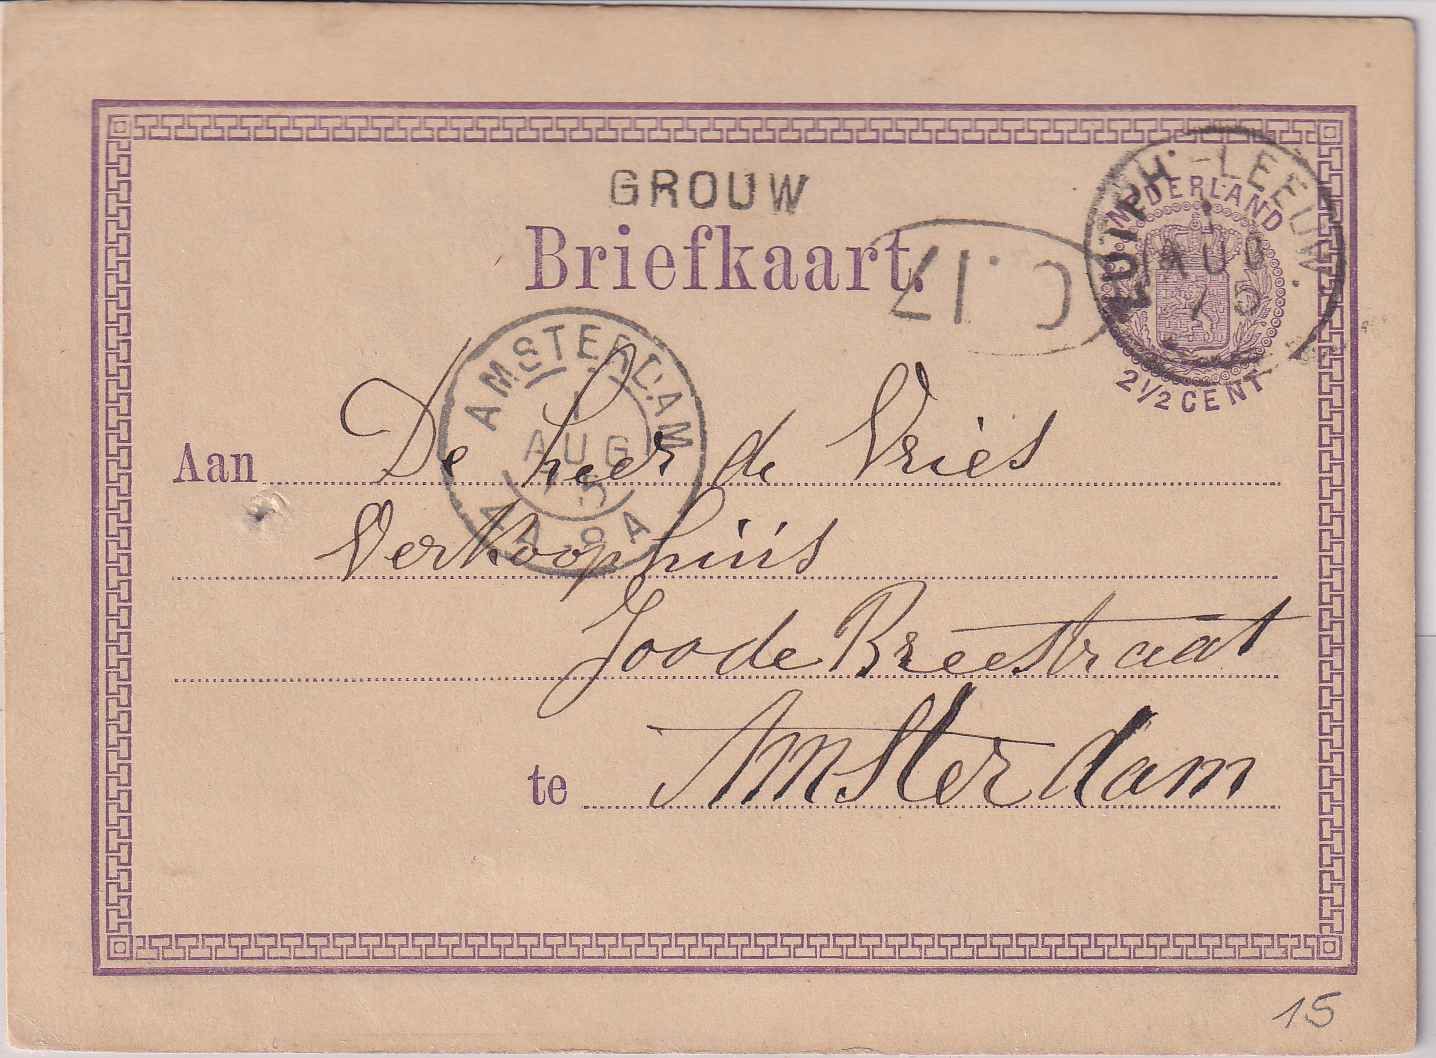 GROUW
Briefkaart.
ZUTPH.-LEEUW.
1
AUG
75
NEDERLAND
2½ CENT
C.17
AMSTERDAM
1
AUG
75
Aan De heer de Vries
Verkoophuis
Joode Breestraat
te Amsterdam
15